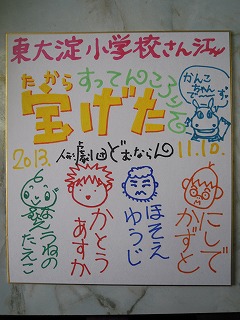 東大淀小学校さん江
たから
すってんころりで
宝げた
かんこちゃんで〜す。
2013. 人形劇団どむならん 11.10.
むねの たえこ
かとう あすか
ほそえ ゆうじ
にしで かずと